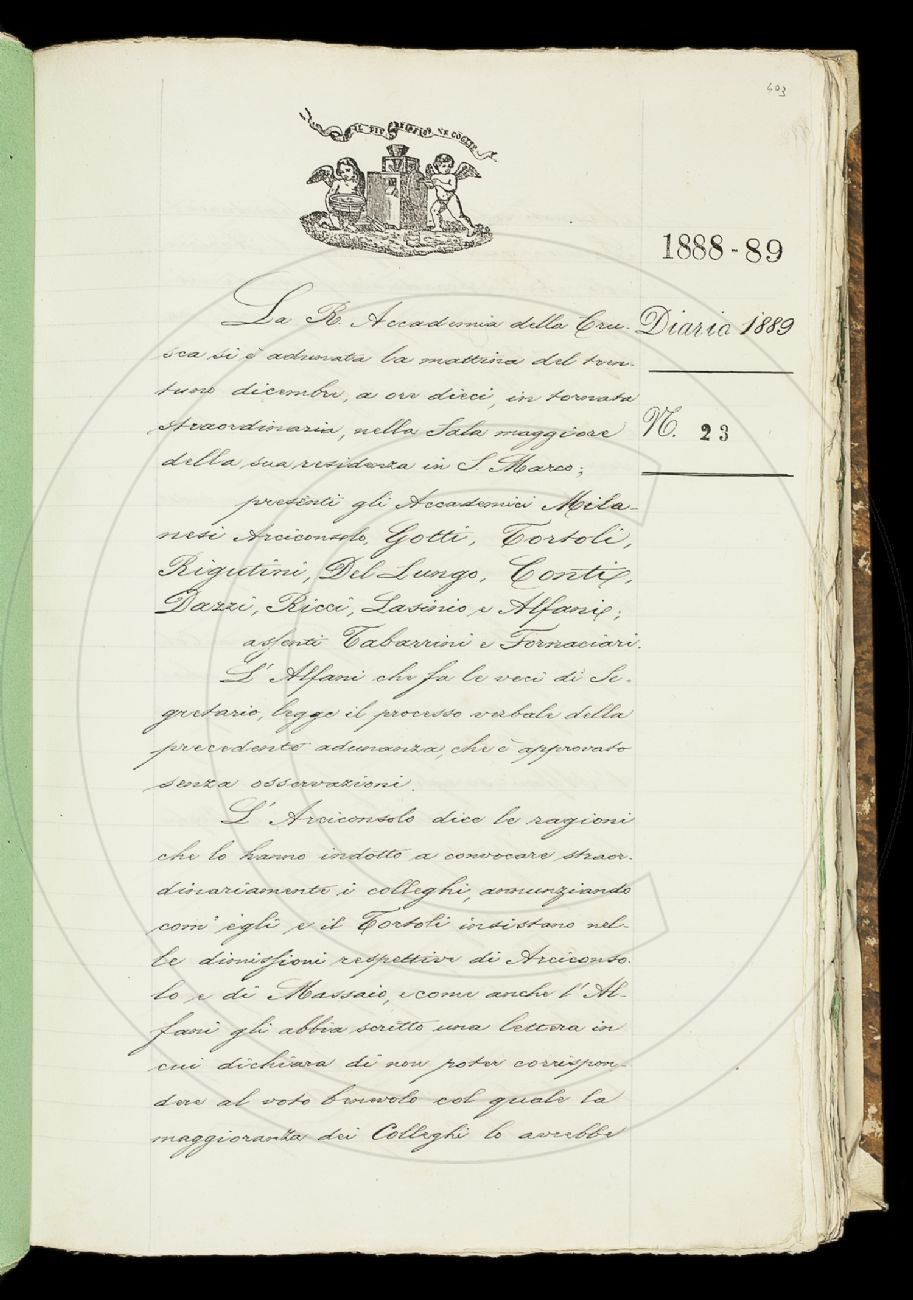 603
IL PIÙ BEL FIOR NE COGLIE
1888-89
Diario 1889
N. 23
La R. Accademia della Cru-
sca si è adunata la mattina del tren-
tuno dicembre, a ore dieci, in tornata
straordinaria, nella Sala maggiore
della sua residenza in S. Marco;
presenti gli Accademici Mila-
nesi Arciconsolo, Gotti, Tortoli,
Rigutini, Del Lungo, Conti,
Dazzi, Ricci, Lasinio e Alfani;
assenti Tabarrini e Fornaciari.
L' Alfani che fa le veci di Se-
gretario, legge il processo verbale della
precedente adunanza, che è approvato
senza osservazioni.
L' Arciconsolo dice le ragioni
che lo hanno indotto a convocare straor-
dinariamente i colleghi, annunziando
com' egli e il Tortoli insistano nel-
le dimissioni respettive di Arciconso-
lo e di Massaio, e come anche l' Al-
fani gli abbia scritto una lettera in
cui dichiara di non poter corrispon-
dere al voto benevolo col quale la
maggioranza dei Colleghi lo avrebbe